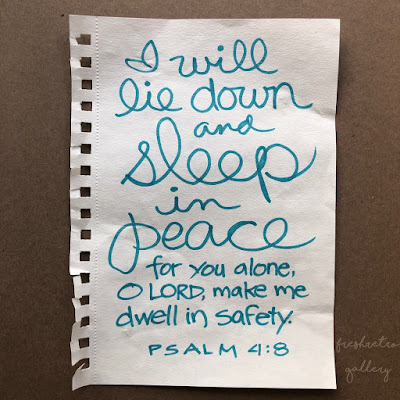 I will
lie down
and
sleep
in
peace
for you alone,
O LORD, make me
dwell in safety.
PSALM 4:8
freshretro
gallery